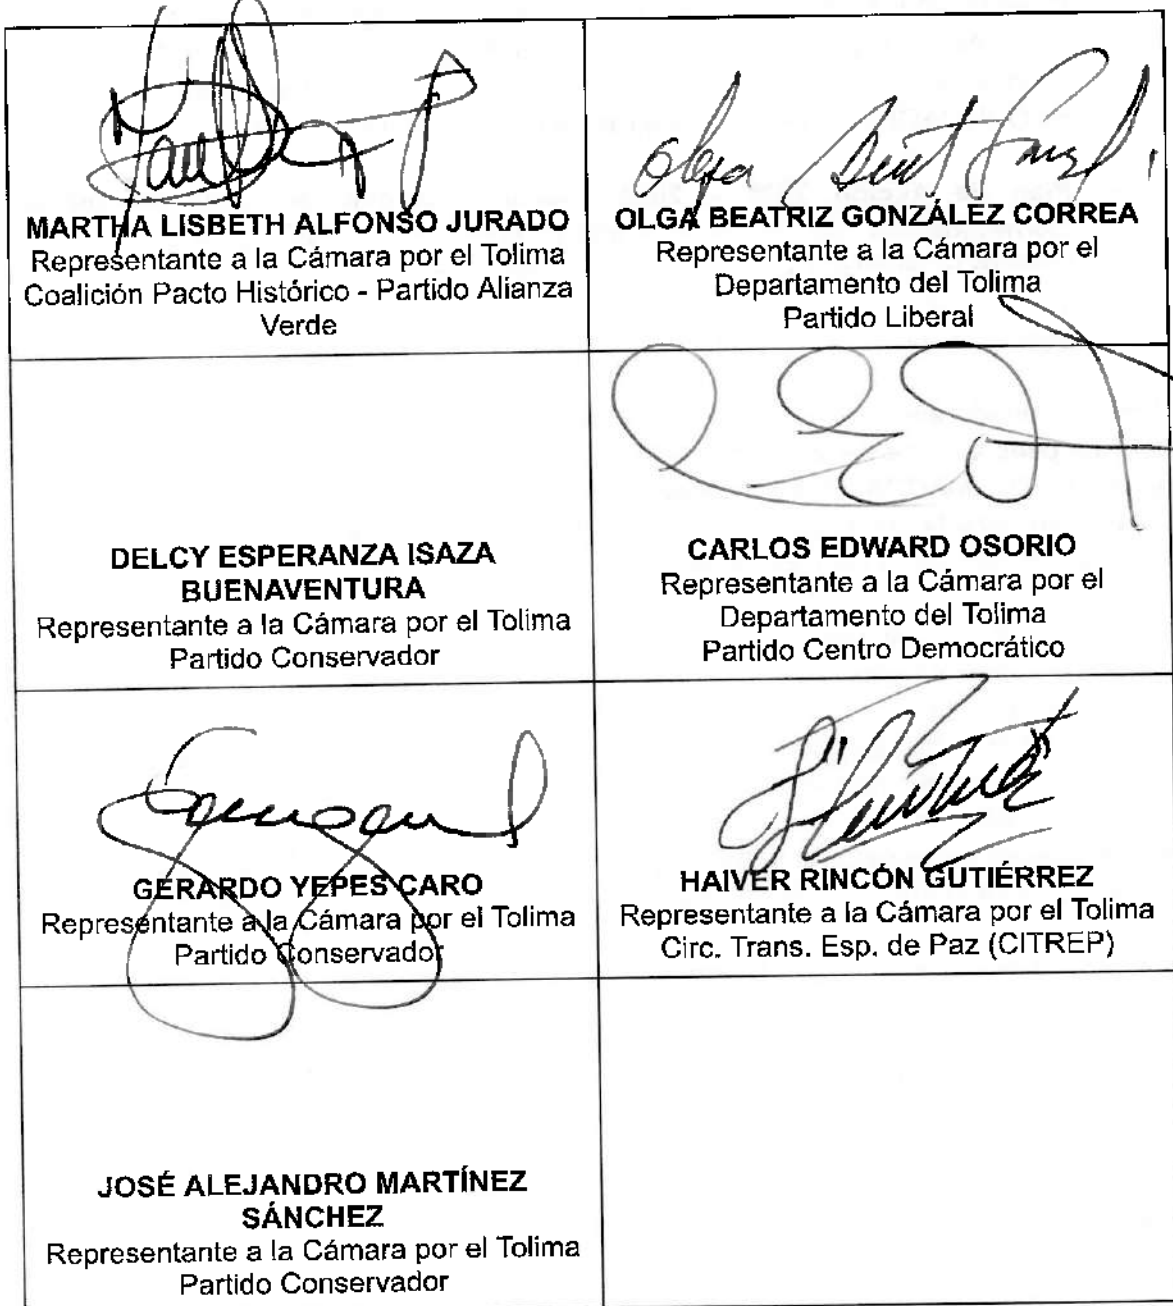 MARTHA LISBETH ALFONSO JURADO
Representante a la Cámara por el Tolima
Coalición Pacto Histórico - Partido Alianza
Verde
Olga
OLGA BEATRIZ GONZÁLEZ CORREA
Representante a la Cámara por el
Departamento del Tolima
Partido Liberal
DELCY ESPERANZA ISAZA
BUENAVENTURA
Representante a la Cámara por el Tolima
Partido Conservador
CARLOS EDWARD OSORIO
Representante a la Cámara por el
Departamento del Tolima
Partido Centro Democrático
GERARDO YEPES CARO
Representante a la Cámara por el Tolima
Partido Conservador
HAIVER RINCÓN GUTIÉRREZ
Representante a la Cámara por el Tolima
Circ. Trans. Esp. de Paz (CITREP)
JOSÉ ALEJANDRO MARTÍNEZ
SÁNCHEZ
Representante a la Cámara por el Tolima
Partido Conservador